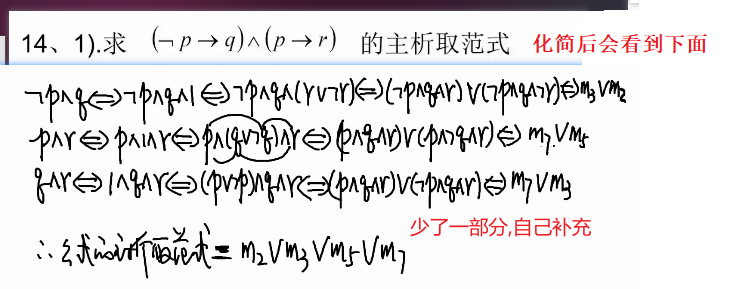 14、1).求 (¬p→q)∧(p→r) 的主析取范式 化简后会看到下面
¬p∧q⇔¬p∧q∧1⇔¬p∧q∧(r∨¬r)⇔(¬p∧q∧r)∨(¬p∧q∧¬r)⇔m3∨m2
p∧r⇔p∧1∧r⇔p∧(q∨¬q)∧r⇔(p∧q∧r)∨(p∧¬q∧r)⇔m7∨m5
q∧r⇔1∧q∧r⇔(p∨¬p)∧q∧r⇔(p∧q∧r)∨(¬p∧q∧r)⇔m7∨m3
少了一部分,自己补充
∴公式的主析取范式=m2∨m3∨m5∨m7